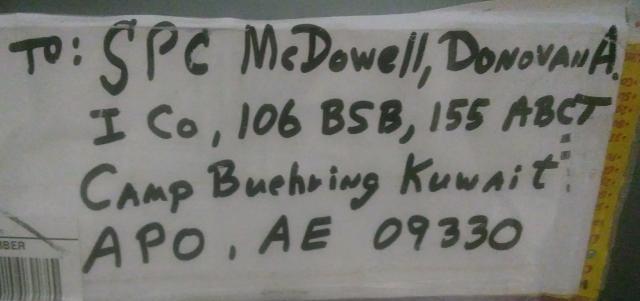 TO: SPC McDowell, DONOVAN A.
I Co, 106 BSB, 155 ABCT
CAMP Buehring Kuwait
APO, AE 09330
BER